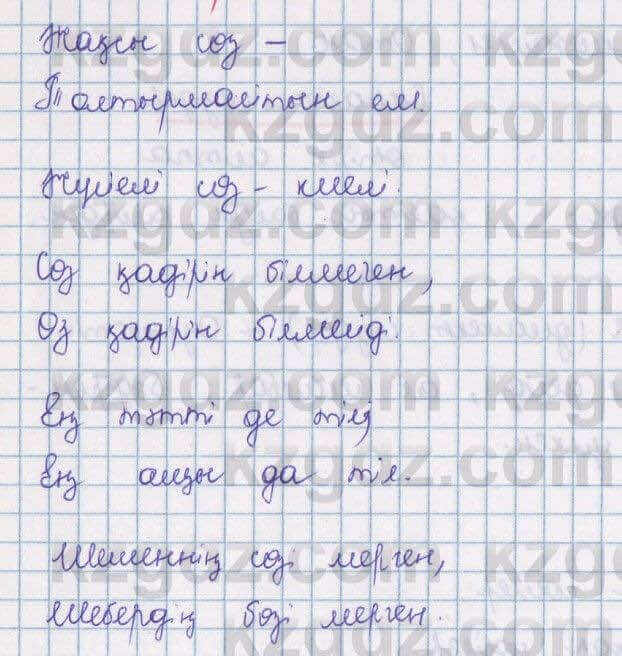 Жақсы сөз –
Таптырмайтын ем.
Жүйелі сөз – киелі.
Сөз қадірін білмеген,
Өз қадірін білмейді.
Ең тәтті де тіл,
Ең ащы да тіл.
Шешеннің сөзі мерген,
Шебердің көзі мерген.
kzgdz.com